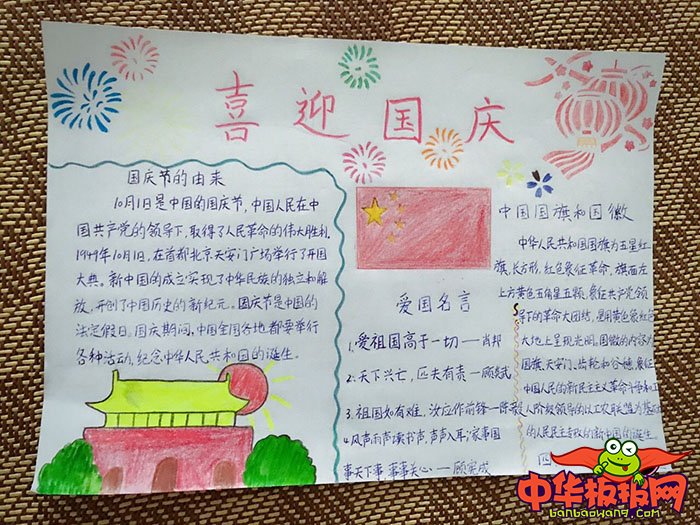 喜迎国庆
国庆节的由来
10月1日是中国的国庆节,中国人民在中
国共产党的领导下,取得了人民革命的伟大胜利.
1949年10月1日,在首都北京天安门广场举行了开国
大典。新中国的成立实现了中华民族的独立和解
放,开创了中国历史的新纪元。国庆节是中国的
法定假日。国庆期间,中国全国各地都要举行
各种活动,纪念中华人民共和国的诞生。
爱国名言
1.爱祖国高于一切——肖邦
2.天下兴亡,匹夫有责——顾炎武
3.祖国如有难,汝应作前锋——陈
4.风声雨声读书声,声声入耳;家事国
事天下事 事事关心——顾宪成
中国国旗和国徽
中华人民共和国国旗为五星红
旗,长方形,红色象征革命,旗面左
上方黄色五角星五颗,象征共产党领
导下的革命大团结,是用黄色象征
大地上呈现光明。国徽的内容为
国旗、天安门、齿轮和谷穗,象征
中国人民的新民主主义革命斗争和工
人阶级领导的以工农联盟为基础
的人民民主专政的新中国的诞生。
中华板报网
banbaowang.com